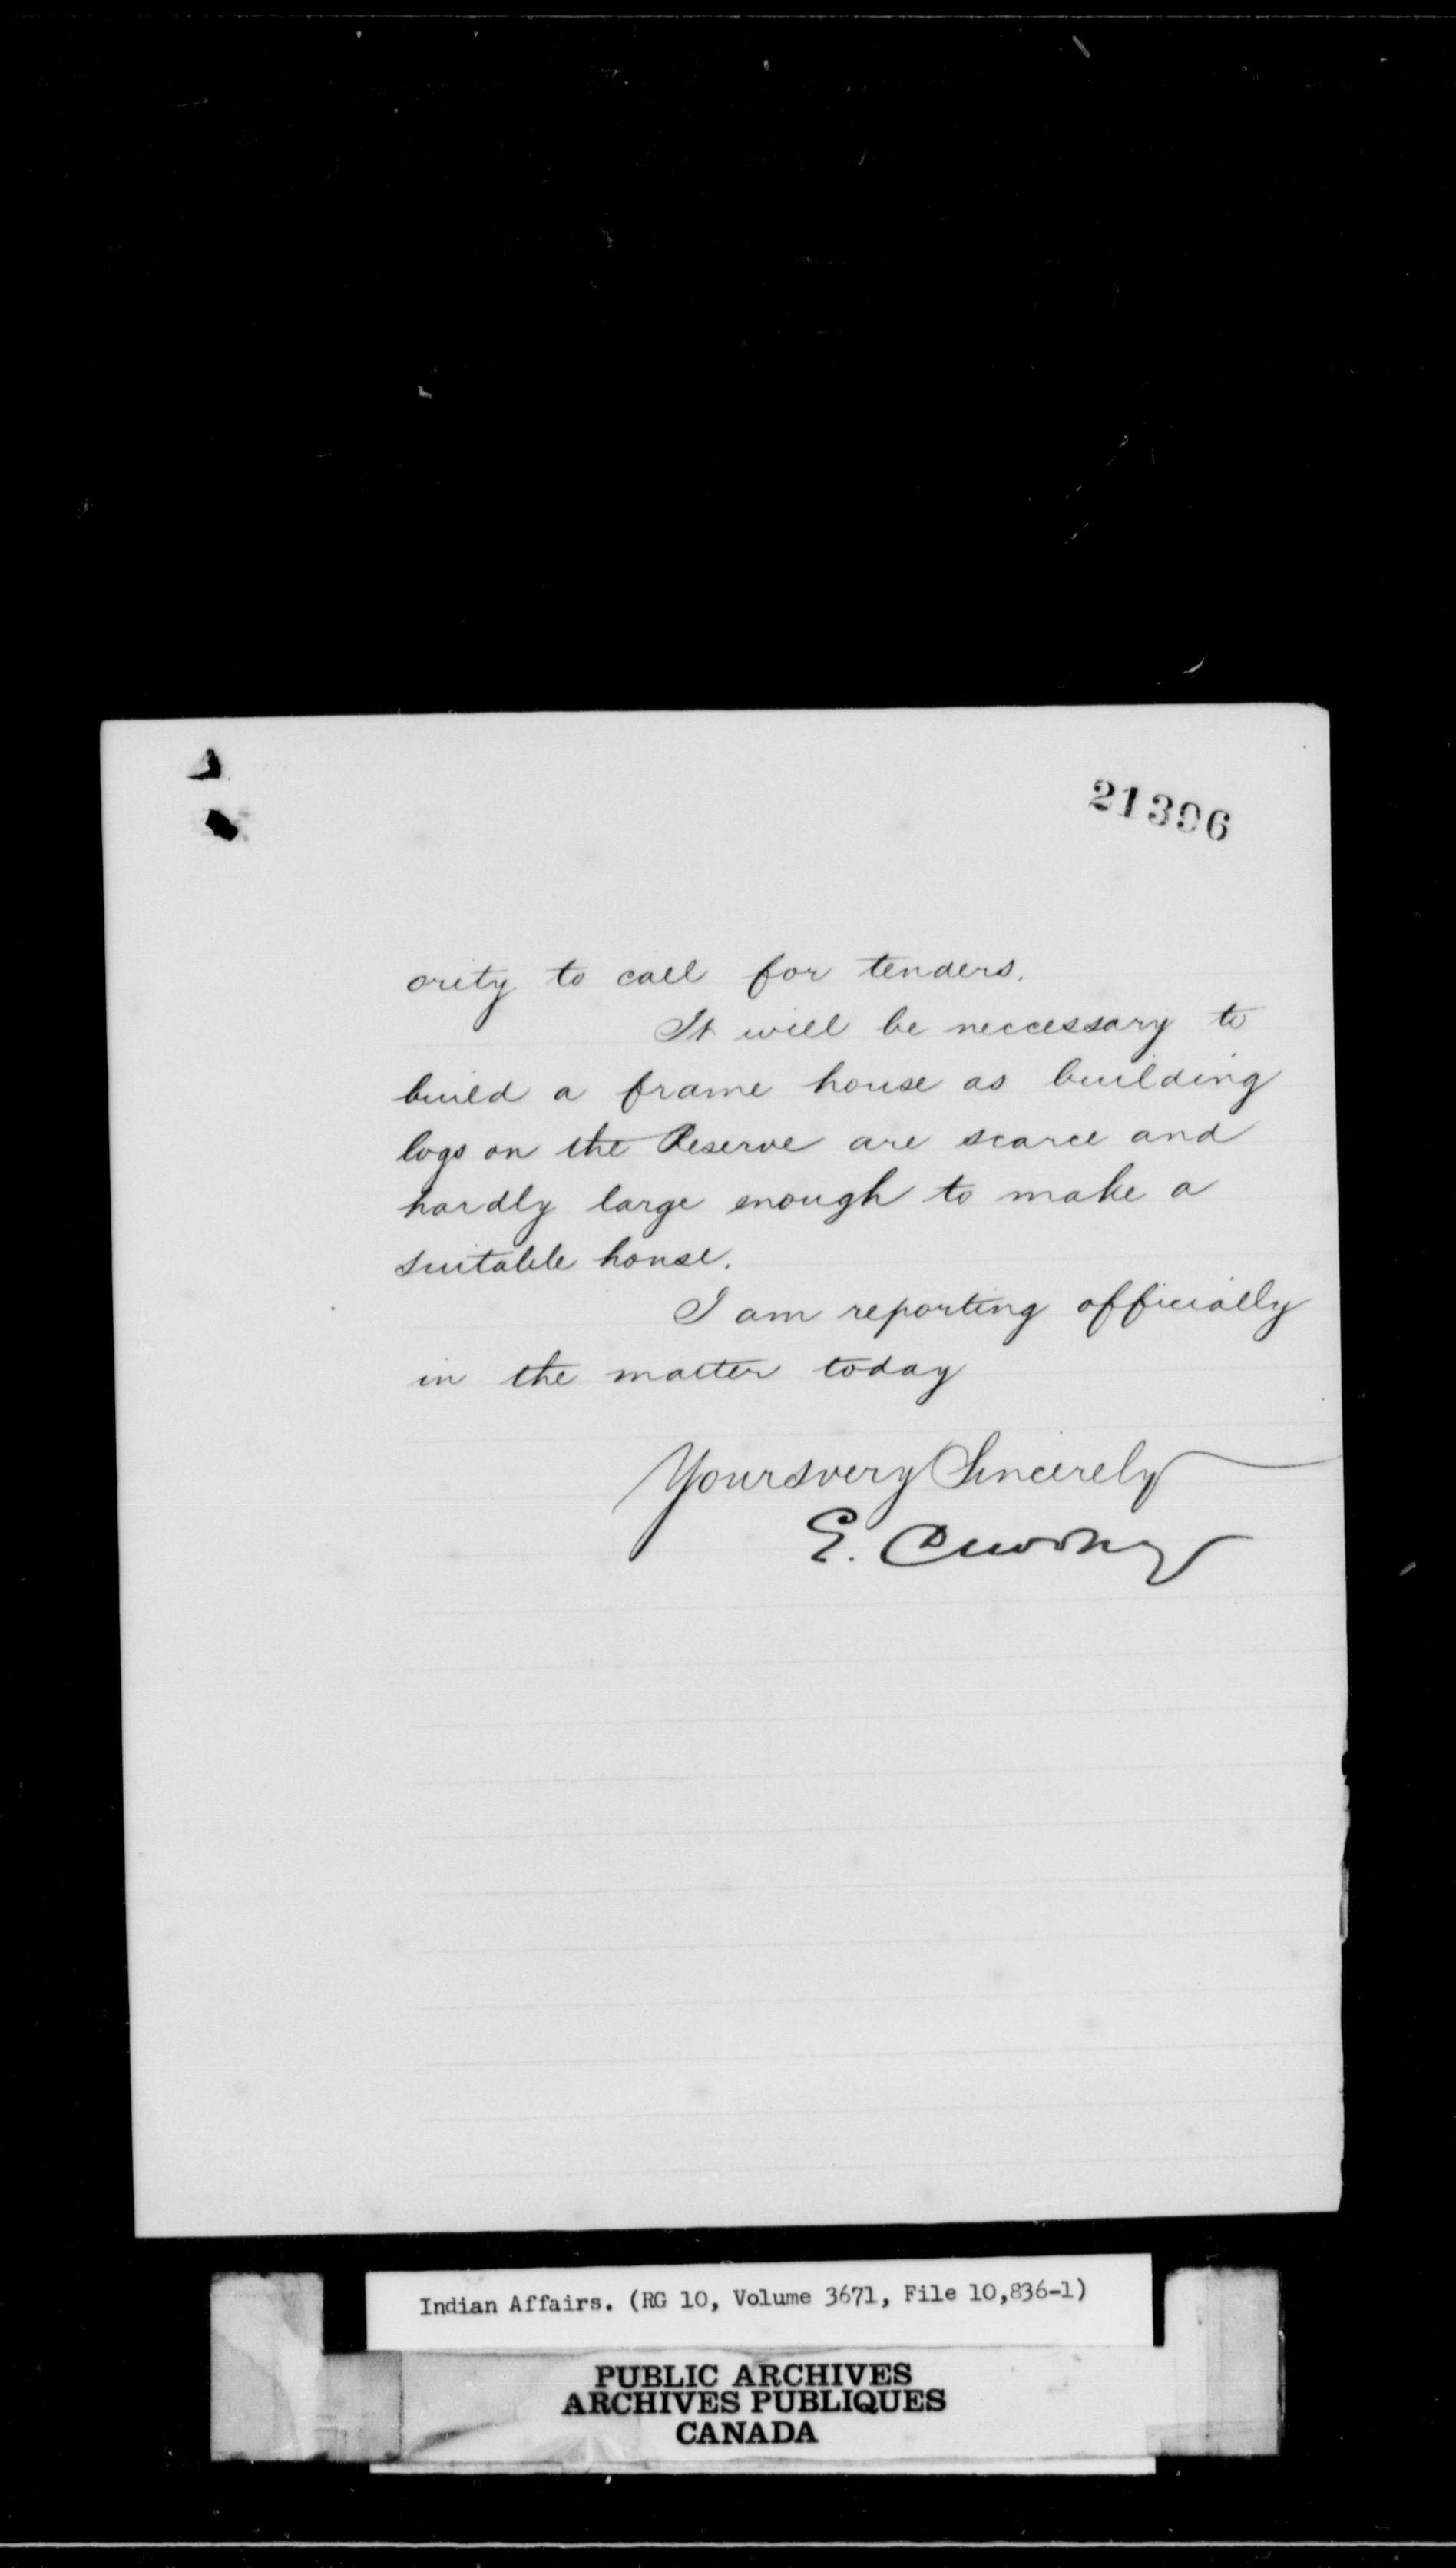 21396
ority to call for tenders.
It will be neccessary to
build a frame house as building
logs on the Reserve are scarce and
hardly large enough to make a
suitable house.
I am reporting officially
in the matter today
Yours very Sincerely
E. Dewdney
Indian Affairs. (RG 10, Volume 3671, File 10,836-1)
PUBLIC ARCHIVES
ARCHIVES PUBLIQUES
CANADA